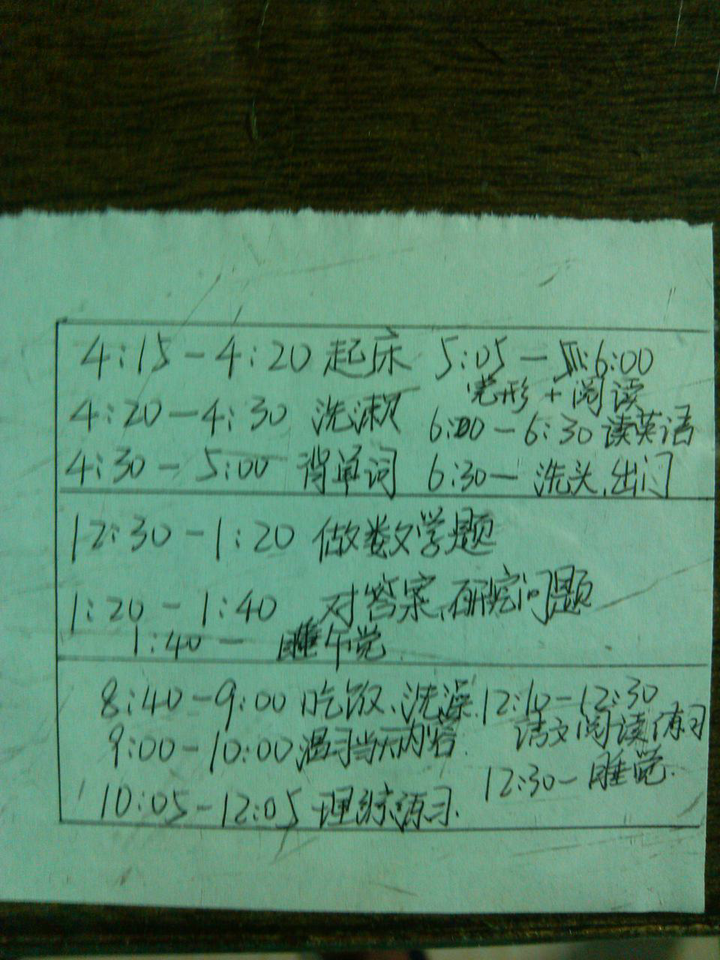 4:15-4:20 起床
4:20-4:30 洗漱
4:30-5:00 背单词
5:05-6:00
完形+阅读
6:00-6:30 读英语
6:30- 洗头、出门
12:30-1:20 做数学题
1:20-1:40 对答案、研究问题
1:40- 睡午觉
8:40-9:00 吃饭、洗澡
9:00-10:00 温习当天内容.
10:05-12:05 理综练习.
12:10-12:30
语文阅读练习
12:30- 睡觉.